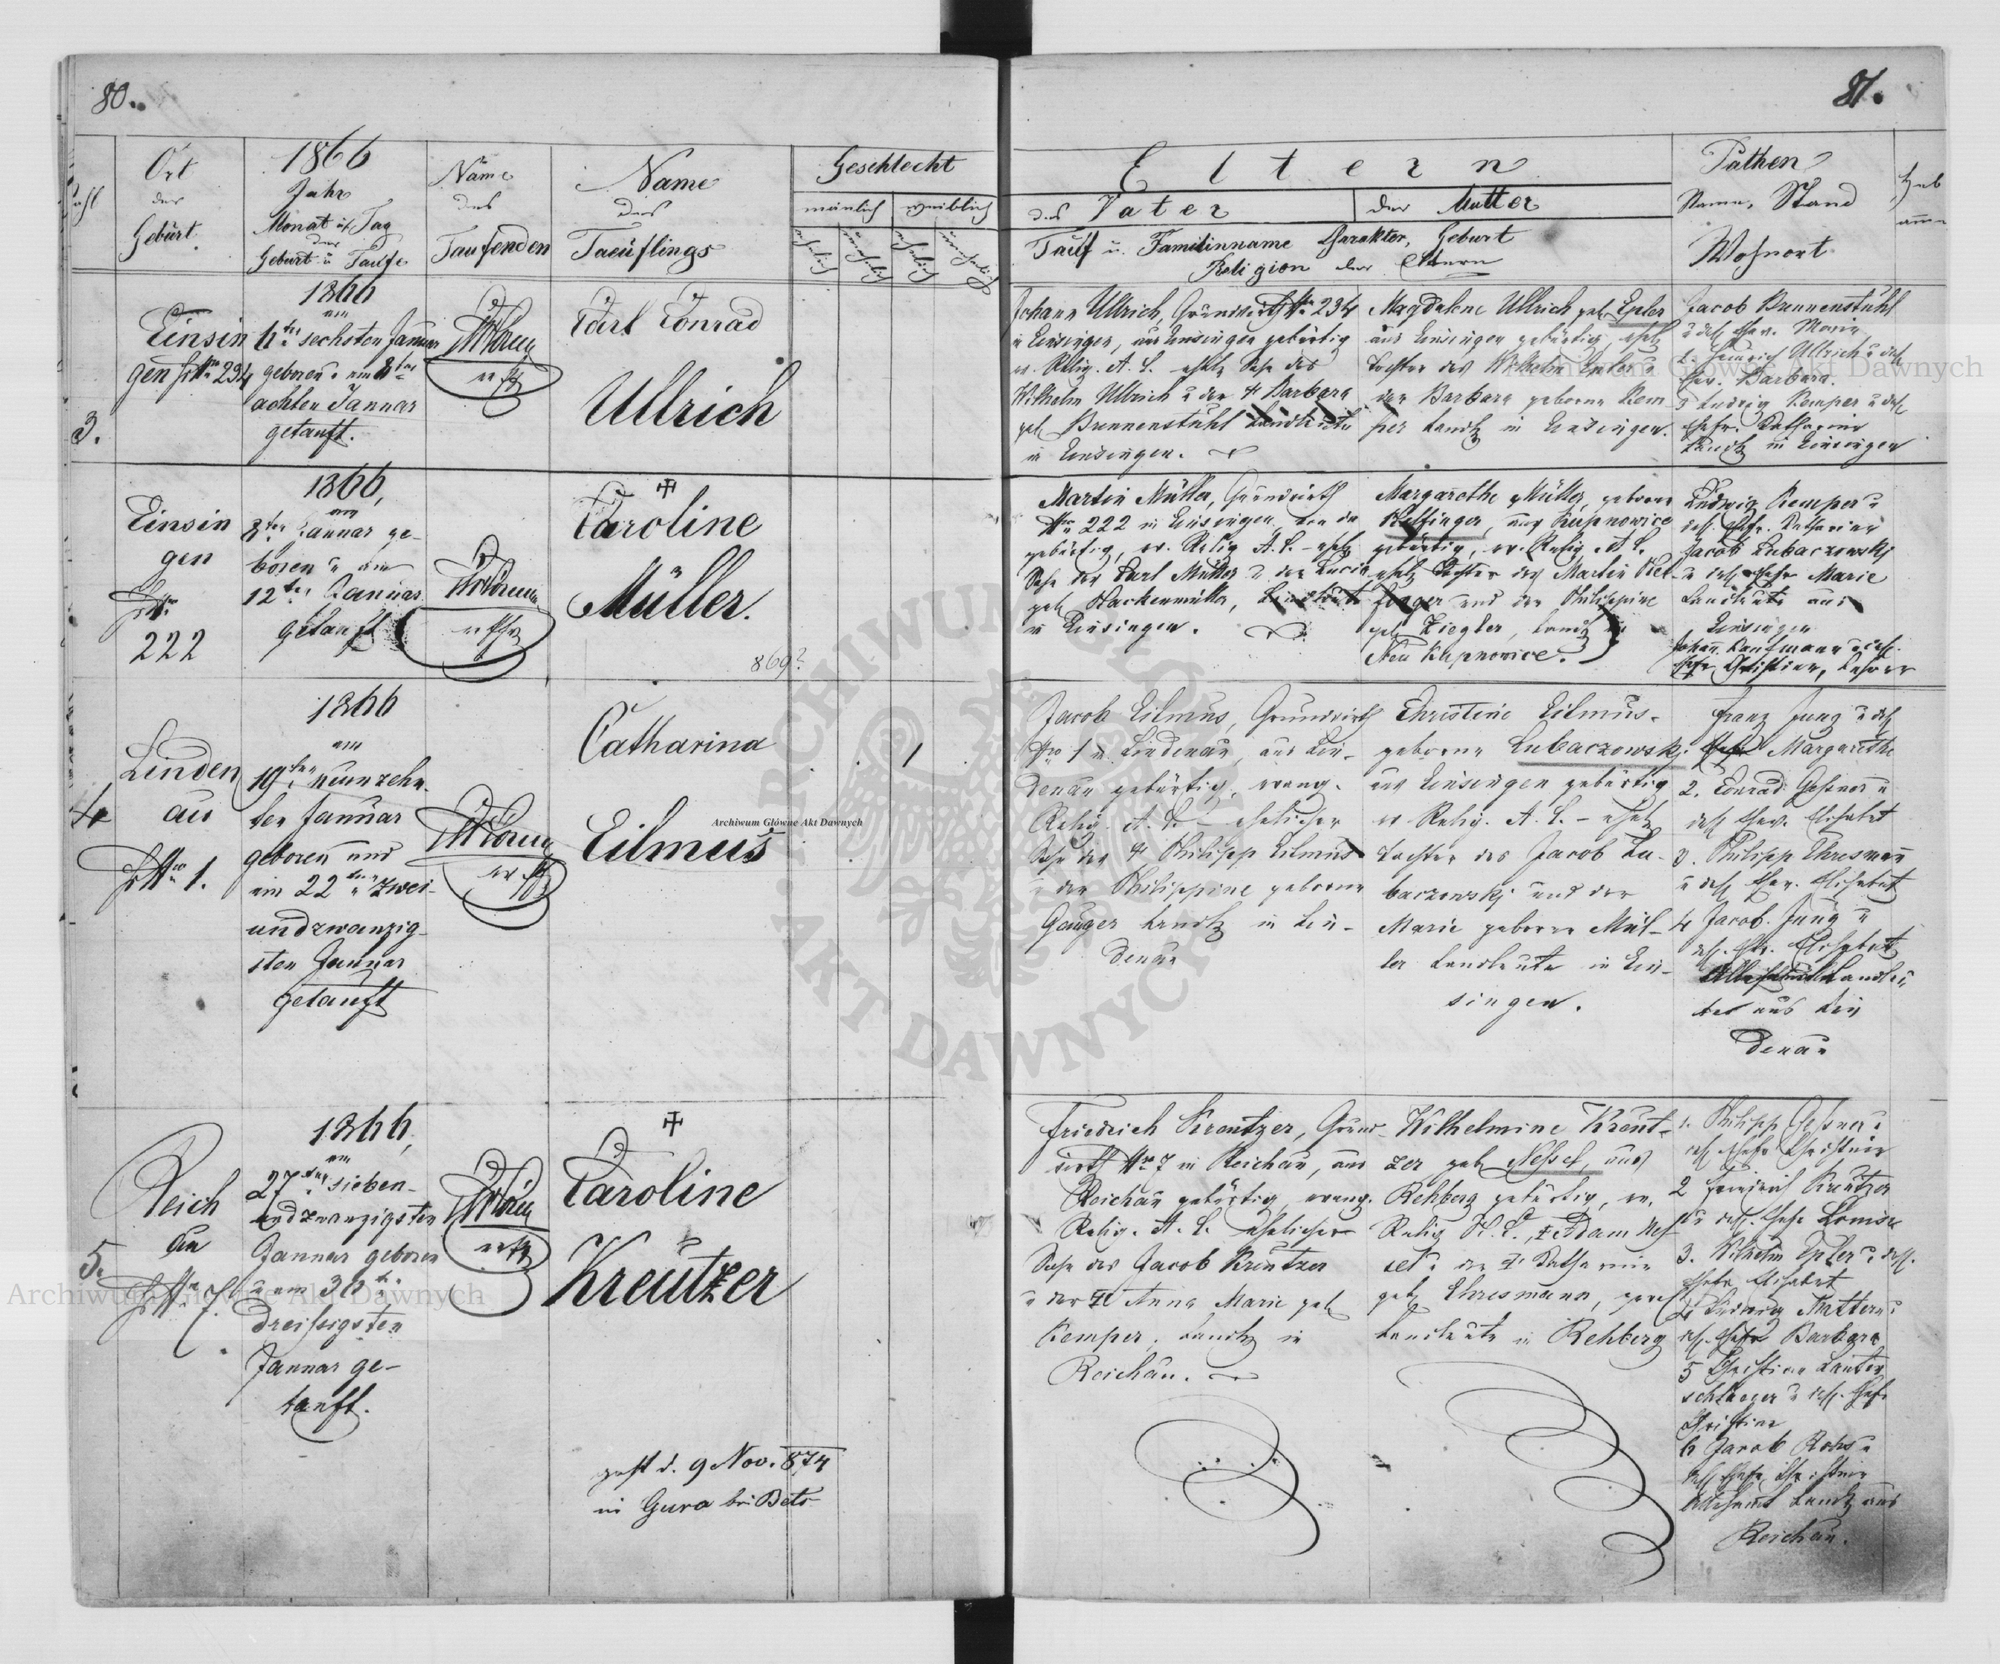 80.
81.
Ort
der
Geburt.
1866
Jahr
Monat u. Tag
der
Geburt u Taufe
Name
des
Taufenden
Name
des
Taeuflings
Geschlecht
mänlich weiblich
Eltern
des Vater
der Mutter
Tauf u. Familinname Charakter, Geburt
Religion der Eltern
Pathen
Name, Stand
Wohnort
Heb
amme
3.
Einsin
gen 234
1866
am
6ten sechsten Januar
geboren u am 8ten
achten Januar
getauft.
Carl Conrad
Ullrich
Johann Ullrich, Grundwirth Nro 234
in Einsingen, aus Einsingen gebürtig
ev. Relig. A. C. ehel. Sohn des
Wilhelm Ullrich u der Barbara
geb Brennenstuhl Landleute
in Einsingen.
Magdalene Ullrich geb. Epler
aus Einsingen gebürtig, ehel
Tochter des Wilhelm Epler u
der Barbara geborne Kem
per Landl. in Einsingen.
Jacob Brennenstuhl
Marie
2. Heinrich Ullrich u
Barbara.
3 Ludwig Kemper u
Ehefr. Katharine
in Einsingen
Einsin
gen
222
1866,
am
8ter Januar ge-
boren u am
12ter Januar
getauft
Caroline
Müller.
869?
Martin Müller, Grundwirth
Nro 222 in Einsingen, von da
gebürtig, ev. Relig A. C. - ehel
Sohn des Carl Müller u der Lucia
geb. Hackenmüller, Landleute
in Einsingen.
Margarethe Müller, geborne
aus Kupnowice
gebürtig, ev. Relig. A. C.
ehel. Tochter des Martin
und der Philippine
geb Ziegler, Landl. in
Neu Kupnowice.
Ludwig Kemper u
des. Ehefr. Katharine
Jacob Lubaczowski
u des Ehefr Marie
Landleute aus
Einsingen
Johan. Kaufmann u
Christine, Lehrer
4
Linden
au
Nro 1.
1866
am
19ten neunzehn-
ten Januar
geboren und
am 22ten zwei-
undzwanzig-
sten Januar
getauft
Catharina
Eilmus
1
Jacob Eilmus, Grundwirth
Nro 1 in Lindenau, aus Lin-
denau gebürtig, evang.
Relig. A. C. - ehelicher
Sohn des Philipp Eilmus
u der Philippine geborne
Gauger Landl. in Lin-
denau
Christine Eilmus-
geborne Lubaczowski
aus Einsingen gebürtig
ev Relig. A. C. - ehel
Tochter des Jacob Lu-
baczowskj und der
Marie geborne Mül-
ler Landleute in Ein-
singen.
Franz Jung u des
Ehefr Margarethe
2. Conrad u
des Ehev. Elisabet
3. Philipp Ehresmann
u des Ehev. Elisabet
4 Jacob Jung u
des. Elisabet
Landleu
te aus Lin
denau
5.
Reich
au
Nro 7.
1866,
am
27ten sieben-
undzwanzigsten
Januar geboren
u am 30te
dreissigsten
Januar ge-
tauft.
Caroline
Kreutzer
gest d. 9 Nov. 874
in Gura bei
Friedrich Kreutzer, Grund-
wirth Nro 7 in Reichau, aus
Reichau gebürtig evang.
Relig. A. C. ehelicher
Sohn des Jacob Kreutzer
u der Anna Marie geb
Kemper, Landl. in
Reichau.
Wilhelmine Kreut-
zer geb Nessel, aus
Rehberg gebürtig, ev.
Relig H. C., Adam Nes
sel u der Katharine
geb Ehresmann,
Landleute in Rehberg
1. Philipp Gessner u
des Ehefr Christine
2 Friedrich Kreutzer
u des. Ehefr Louise
3. Wilhelm Epler u des.
Ehefr Elisabet
4 Ludwig Mattern u
des. Ehefr Barbara
5 Christian Lauter
schlaeger u des. Ehefr
Christine
6 Jacob u
des Ehefr Christine
Landl. aus
Reichau.
ARCHIWUM GŁÓWNE AKT DAWNYCH
Archiwum Główne Akt Dawnych
Archiwum Główne Akt Dawnych
Archiwum Główne Akt Dawnych